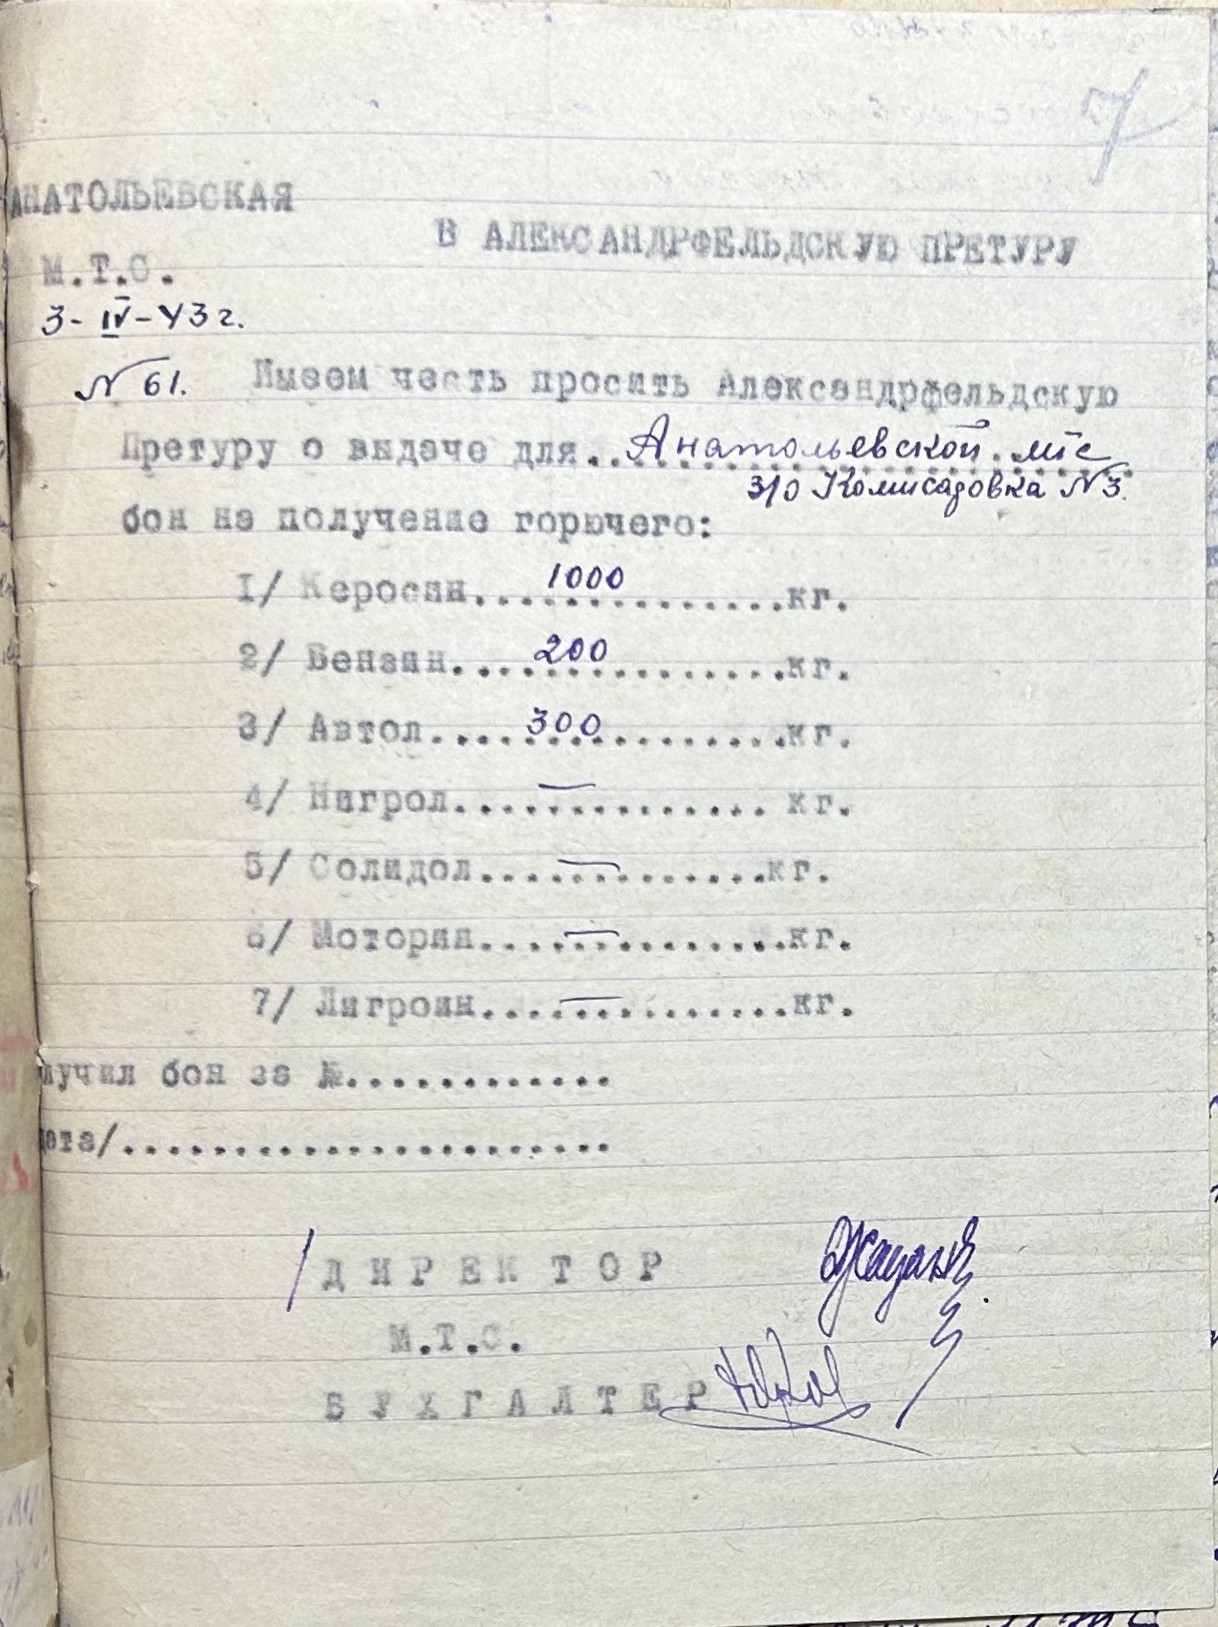 57
АНАТОЛЬЕВСКАЯ
В АЛЕКСАНДРФЕЛЬДСКУЮ ПРЕТУРУ
М.Т.С.
3-IV-43г.
N 61. Имеем честь просить Александрфельдскую
Претуру о выдаче для..Анатольевской мтс
з/о Комисаровка N3.
бон на получение горючего:
1/ Керосин....1000..........кг.
2/ Бензин....200..........кг.
3/ Автол....300..........кг.
4/ Нигрол....—.......... кг.
5/ Солидол....—..........кг.
6/ Моторин....—..........кг.
7/ Лигроин....—..........кг.
лучил бон за №............
дата/......................
/ДИРЕКТОР
М.Т.С.
БУХГАЛТЕР